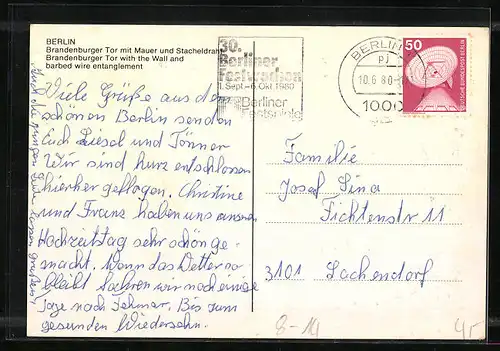 BERLIN
Brandenburger Tor mit Mauer und Stacheldraht
Brandenburger Tor with the Wall and
barbed wire entanglement
30.
Berliner
Festwochen
1. Sept.-6. Okt. 1980
Berliner
Festspiele
BERLIN
pj
10.6.80
1000
50
DEUTSCHE BUNDESPOST BERLIN
Viele Grüße aus dem
schönen Berlin senden
Euch Liesel und
Wir sind kurz entschlossen
hierher geflogen. Christine
und Franz haben uns unseren
Hochzeitstag sehr schön ge-
macht. Wenn das Wetter so
bleibt fahren wir noch einige
Tage nach Fehmarn. Bis zum
gesunden Wiedersehn.
Familie
Josef Lina
Fichtenstr 11
3101 Lachendorf
8-14